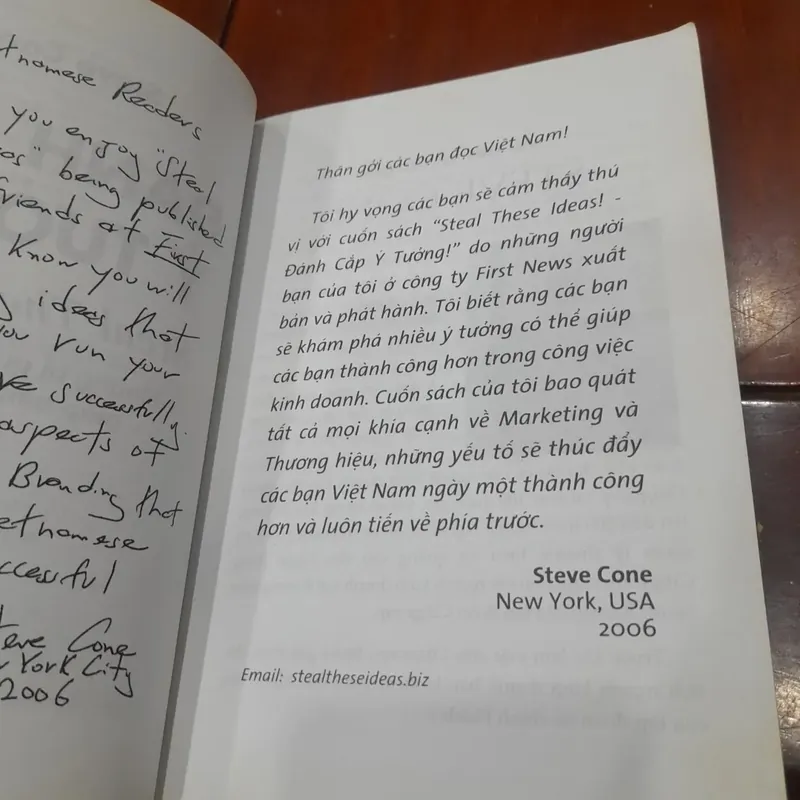 tnamese Readers
you enjoy "Steal
being published
friends at First
Know you will
ideas that
you run your
successfully.
aspects of
Branding that
etnamese
ccessful
Steve Cone
York City
2006
Thân gởi các bạn đọc Việt Nam!
Tôi hy vọng các bạn sẽ cảm thấy thú
vị với cuốn sách “Steal These Ideas! -
Đánh Cắp Ý Tưởng!” do những người
bạn của tôi ở công ty First News xuất
bản và phát hành. Tôi biết rằng các bạn
sẽ khám phá nhiều ý tưởng có thể giúp
các bạn thành công hơn trong công việc
kinh doanh. Cuốn sách của tôi bao quát
tất cả mọi khía cạnh về Marketing và
Thương hiệu, những yếu tố sẽ thúc đẩy
các bạn Việt Nam ngày một thành công
hơn và luôn tiến về phía trước.
Steve Cone
New York, USA
2006
Email: stealtheseideas.biz